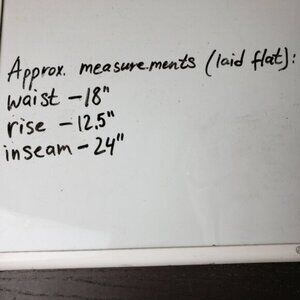 Approx. measurements (laid flat):
waist - 18"
rise - 12.5"
inseam - 24"